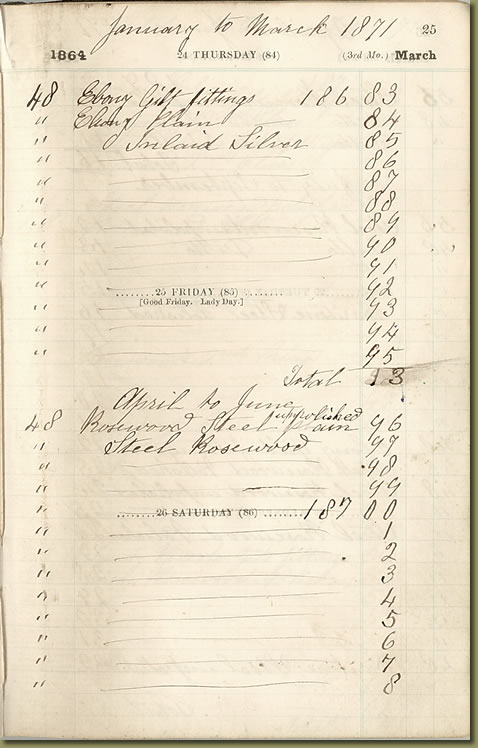 January to March 1871 25
1864 24 THURSDAY (84) (3rd Mo.) March
48 Ebony Gilt fittings 186 83
" Ebony Plain 84
" Inlaid Silver 85
" 86
" 87
" 88
" 89
" 90
" 91
25 FRIDAY (85) 92
[Good Friday. Lady Day.] 93
" 94
" 95
Total 13
April to June
unpolished
48 Rosewood Steel plain 96
" Steel Rosewood 97
" 98
" 99
" 26 SATURDAY (86) 187 00
" 1
" 2
" 3
" 4
" 5
" 6
" 7
" 8